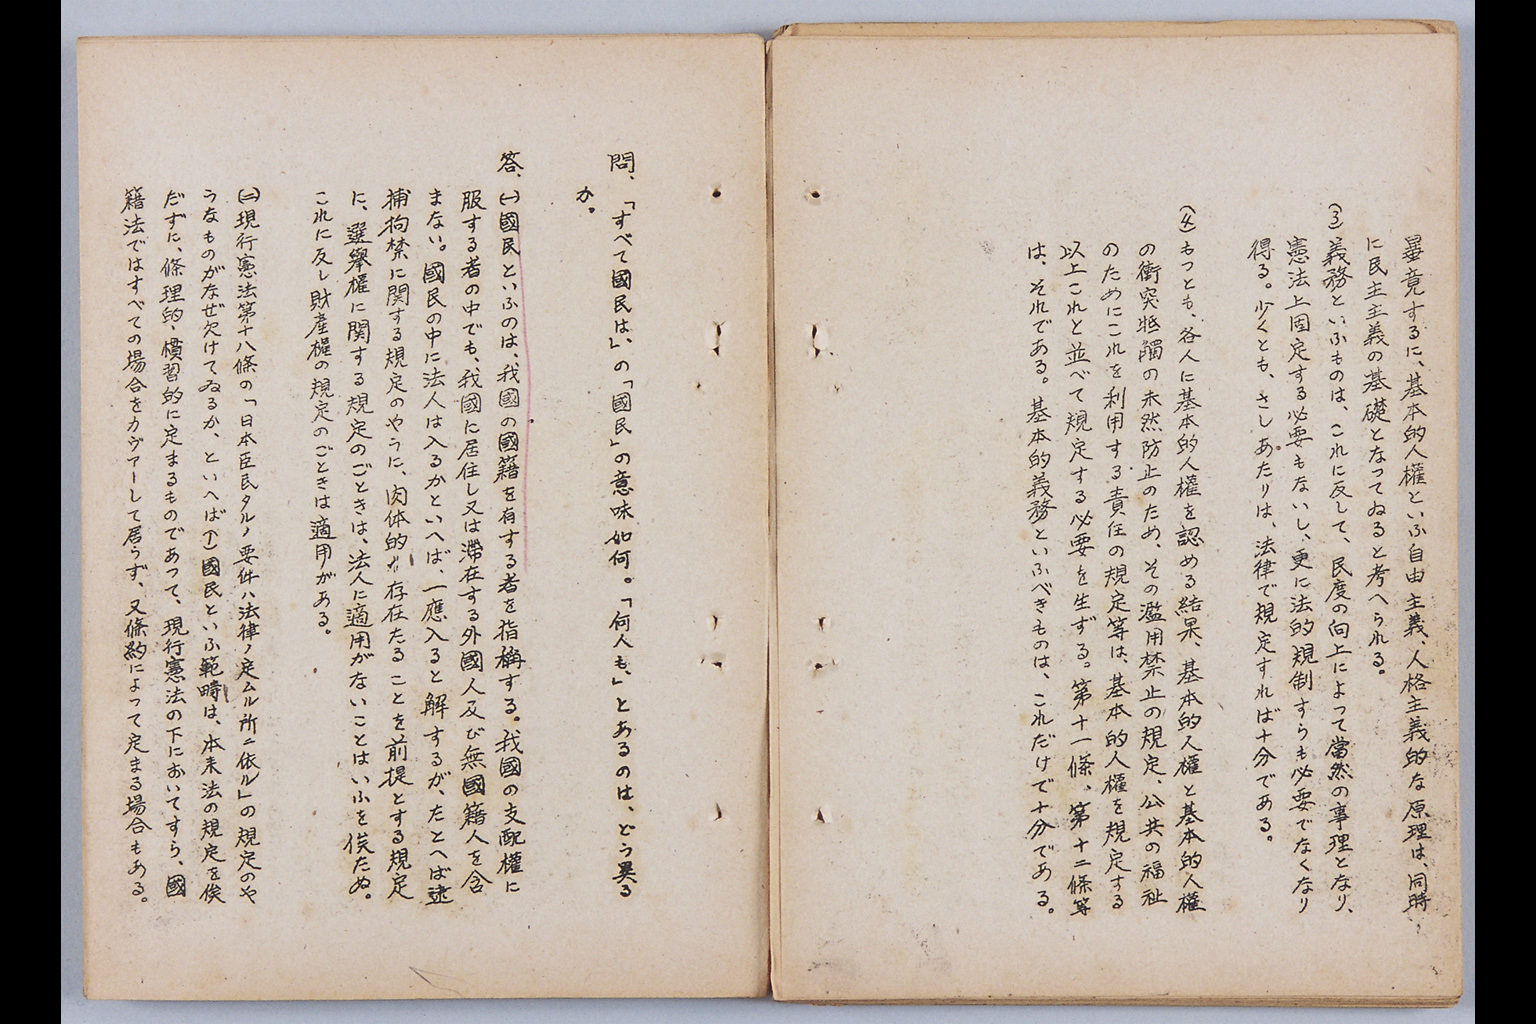 畢竟するに、基本的人權といふ自由主義、人格主義的な原理は、同時
に民主主義の基礎となってゐると考へられる。
(3) 義務といふものは、これに反して、民度の向上によって當然の事理となり、
憲法上固定する必要もないし、更に法的規制すらも必要でなくなり
得る。少くとも、さしあたりは、法律で規定すれば十分である。
(4) もっとも、各人に基本的人權を認める結果、基本的人權と基本的人權
の衝突牴觸の未然防止のため、その濫用禁止の規定、公共の福祉
のためにこれを利用する責任の規定等は、基本的人權を規定する
以上これと並べて規定する必要を生ずる。第十一條、第十二條等
は、それである。基本的義務といふべきものは、これだけで十分である。
問、「すべて國民は、」の「國民」の意味如何。「何人も、」とあるのは、どう異る
か。
答、(一)國民といふのは、我國の國籍を有する者を指稱する。我國の支配權に
服する者の中でも、我國に居住し又は滯在する外國人及び無國籍人を含
まない。國民の中に法人は入るかといへば、一應入ると解するが、たとへば逮
捕拘禁に関する規定のやうに、肉体的存在たることを前提とする規定
に、選擧權に関する規定のごときは、法人に適用がないことはいふを俟たぬ。
これに反し財產權の規定のごときは適用がある。
(二)現行憲法第十八條の「日本臣民タルノ要件ハ法律ノ定ムル所ニ依ル」の規定のや
うなものがなぜ欠けてゐるか、といへば(イ)國民といふ範疇は、本来法の規定を俟
だずに、條理的・慣習的に定まるものであつて、現行憲法の下においてすら、國
籍法ではすべての場合をカヴァーして居らず、又條約によって定まる場合もある。